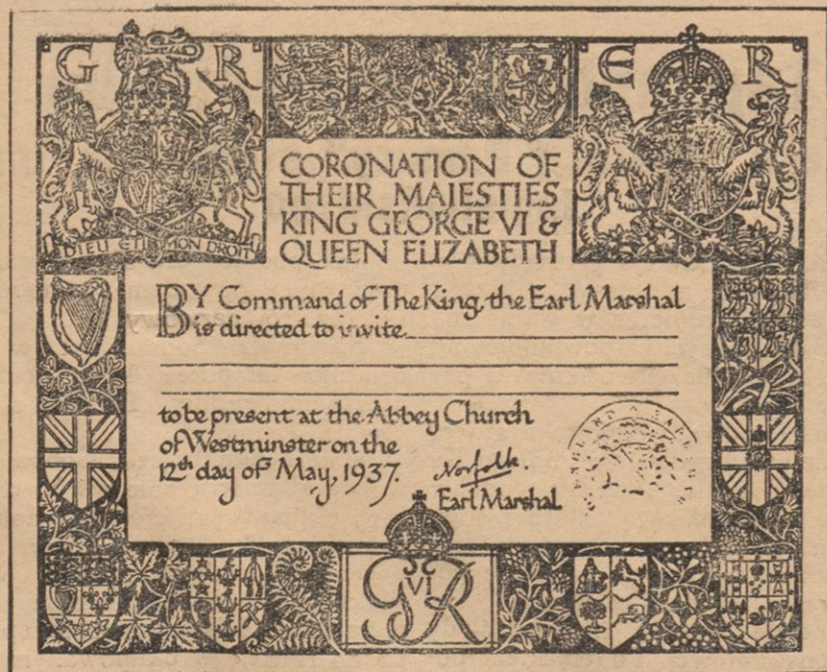 G R E R
DIEU ET MON DROIT
CORONATION OF
THEIR MAJESTIES
KING GEORGE VI &
QUEEN ELIZABETH
BY Command of The King, the Earl Marshal
is directed to invite
to be present at the Abbey Church
of Westminster on the
12th day of May, 1937.
Norfolk.
Earl Marshal
ENGLAND
EARL
G VI R